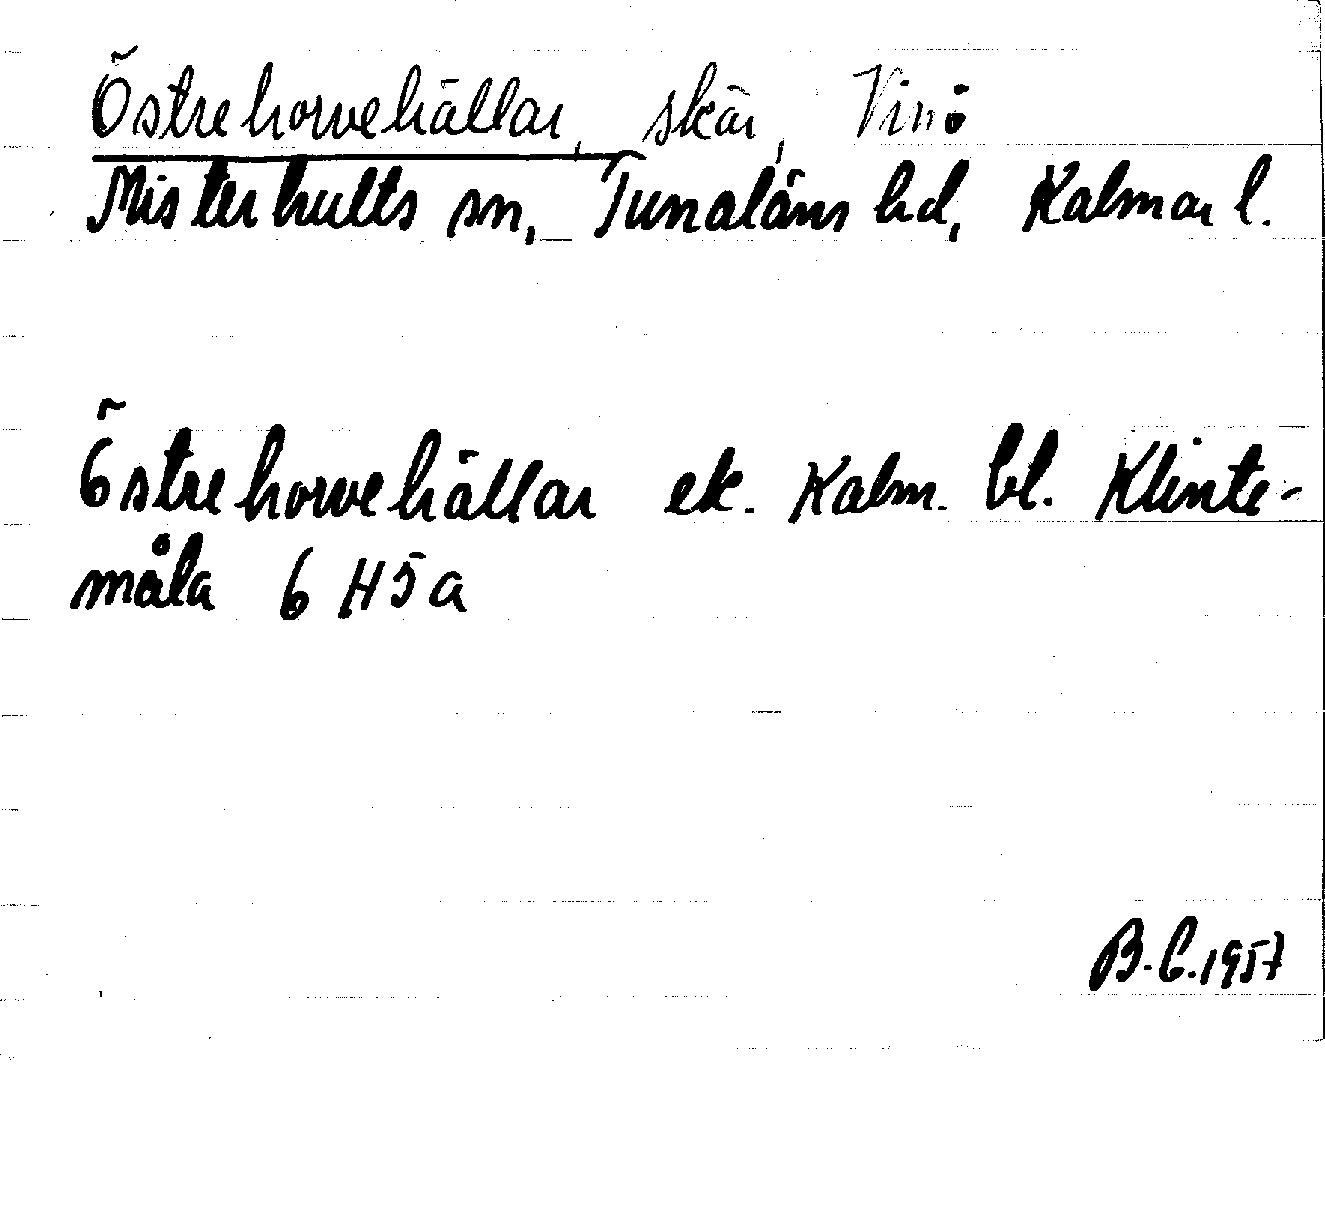 Östrehorvehällar, skär, Vinö
Misterhults sn, Tunaläns hd, Kalmar l.
Östrehorvehällar ek. Kalm. bl. Klinte-
måla 6 H5a
B.C. 1957